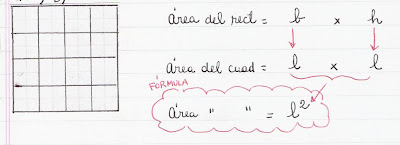 área del rect = b x h
área del cuad = l x l
FÓRMULA
área " " = l²